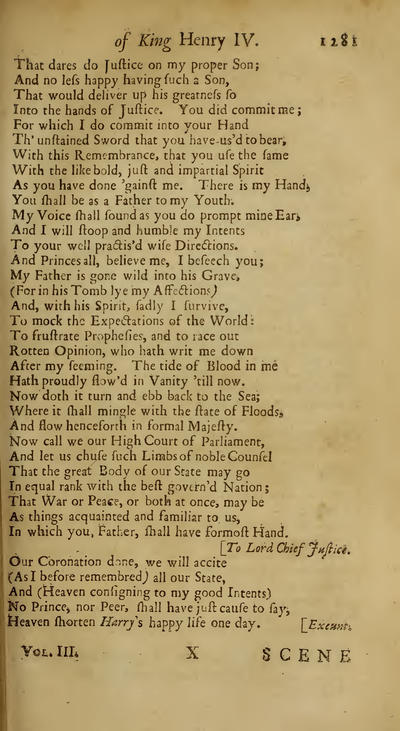 of King Henry IV. 1281
That dares do Juſtice on my proper Son;
And no leſs happy having ſuch a Son,
That would deliver up his greatneſs ſo
Into the hands of Juſtice. You did commit me;
For which I do commit into your Hand
Th' unſtained Sword that you have us'd to bear,
With this Remembrance, that you uſe the ſame
With the like bold, juſt and impartial Spirit
As you have done 'gainſt me. There is my Hand,
You ſhall be as a Father to my Youth.
My Voice ſhall ſound as you do prompt mine Ear,
And I will ſtoop and humble my Intents
To your well practis'd wiſe Directions.
And Princes all, believe me, I beſeech you;
My Father is gone wild into his Grave,
(For in his Tomb lye my Affections)
And, with his Spirit, ſadly I ſurvive,
To mock the Expectations of the World:
To fruſtrate Propheſies, and to race out
Rotten Opinion, who hath writ me down
After my ſeeming. The tide of Blood in me
Hath proudly flow'd in Vanity 'till now.
Now doth it turn and ebb back to the Sea;
Where it ſhall mingle with the ſtate of Floods,
And flow henceforth in formal Majeſty.
Now call we our High Court of Parliament,
And let us chuſe ſuch Limbs of noble Counſel
That the great Body of our State may go
In equal rank with the beſt govern'd Nation;
That War or Peace, or both at once, may be
As things acquainted and familiar to us,
In which you, Father, ſhall have formoſt Hand.
[To Lord Chief Juſtice.
Our Coronation done, we will accite
(As I before remembred) all our State,
And (Heaven conſigning to my good Intents)
No Prince, nor Peer, ſhall have juſt cauſe to ſay,
Heaven ſhorten Harry's happy life one day. [Exeunt.
VOL. III. X SCENE